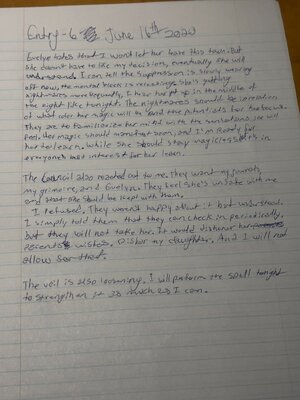 Entry - 6 June 16th 2020
Evelyn hates that I won't let her leave this town. But
she doesn't have to like my decision, eventually she will
understand. I can tell the suppression is slowly wearing
off now, the mental block is releasing. She's getting
nightmares more frequently, I hear her up in the middle of
the night like tonight. The nightmares should be
of what her magic will be and the potentials
They are to familiarize her mind with the sensations she will
feel. Her magic should manifest soon, and I'm ready for
her to learn. While she should stay magicless it's in
everyone's best interest for her learn.
The Council also reached out to me. They want my parents,
my grimoire, and Evelyn. They feel she's unsafe with me
and that she should be kept with them.
I refused. They weren't happy about it but understand.
I simply told them that they can check in periodically,
but they will not take her. It would dishonor her
parents wishes. Dishonor my daughter. And I will not
allow for that.
The veil is also loosening. I will perform the spell tonight
to strengthen it as much as I can.